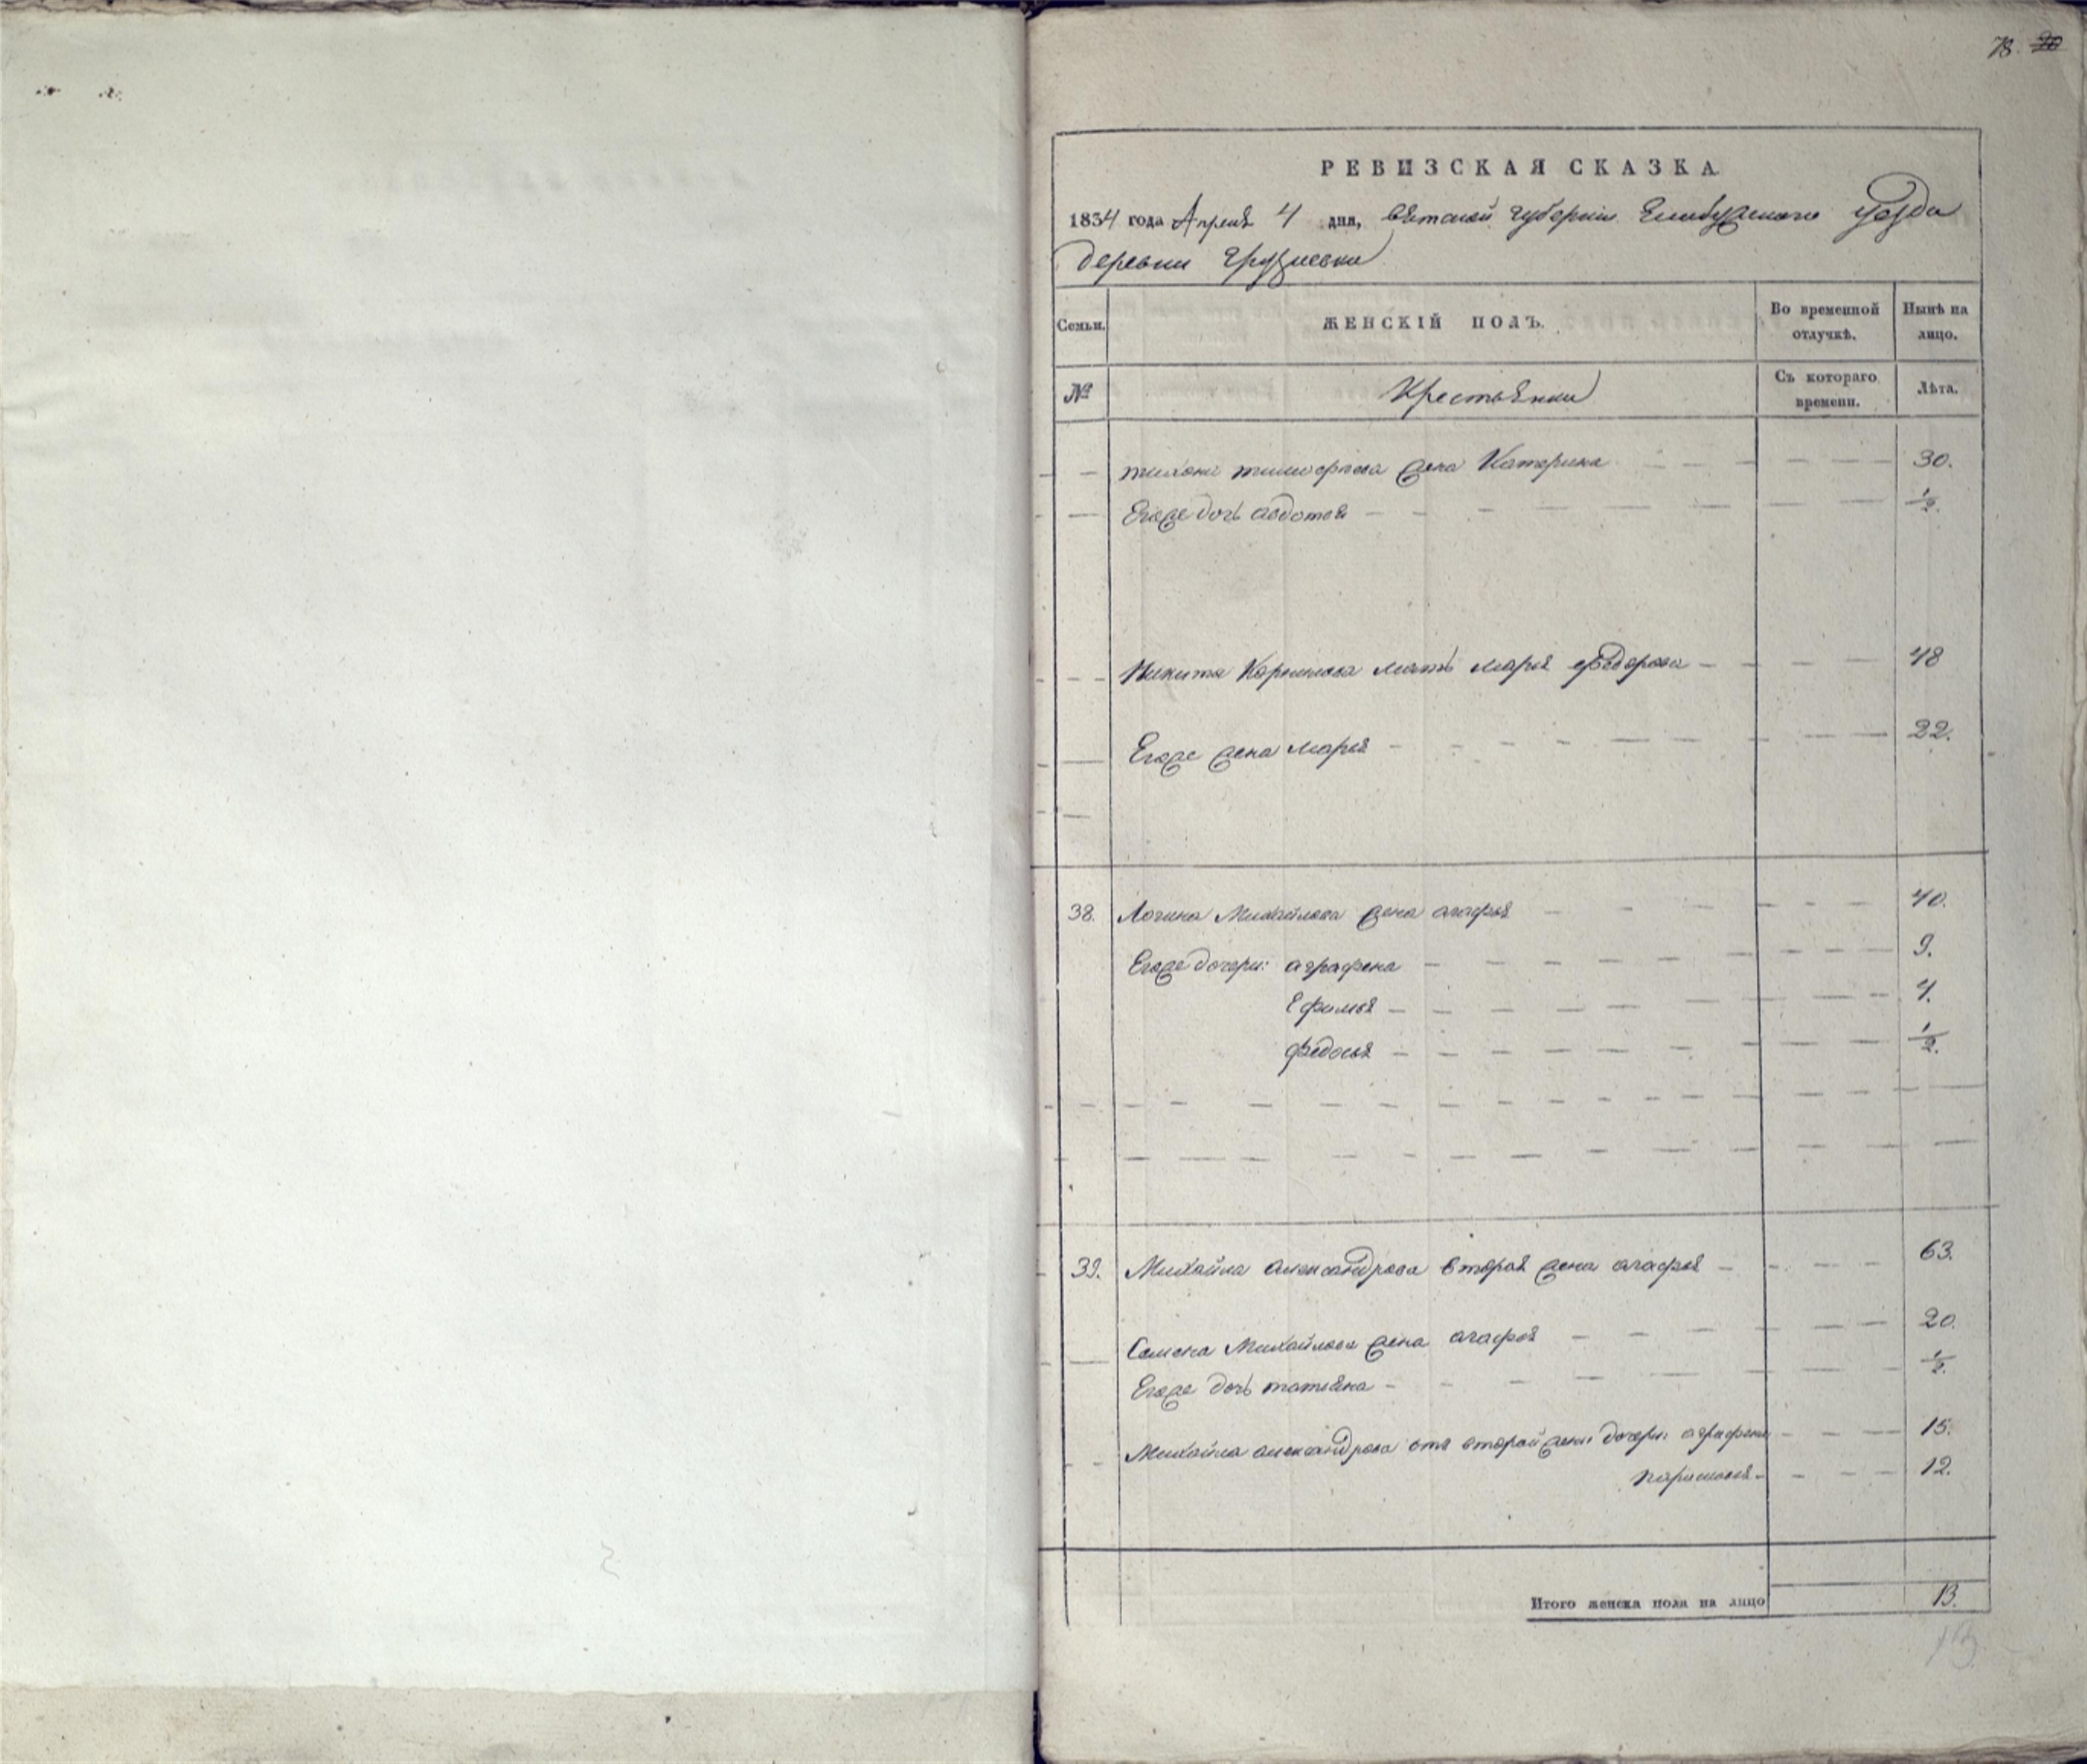 78. 20
РЕВИЗСКАЯ СКАЗКА
1834 года Апреля 4 дня, Вятской губернии Елабужскаго уезда
деревни
Семьи.
ЖЕНСКІЙ ПОЛЪ.
Во временной отлучкѣ.
Нынѣ на лицо.
№
Крестьянки
Съ котораго времени.
Лѣта.
тихона тимофѣева жена Катерина 30.
Егоже дочь авдотья ½.
Никиты Корнилова мать марья федорова 48
Егоже жена марья 22.
38. Логина Михайлова жена агафья 40.
Егоже дочери: аграфена 9.
Ефимья 4.
федосья ½.
39. Михайла александрова вторая жена агафья 63.
Семена Михайлова жена агафья 20.
Егоже дочь татьяна ½.
Михайла александрова отъ второй жены дочери: аграфена 15.
12.
Итого женска пола на лицо 13.